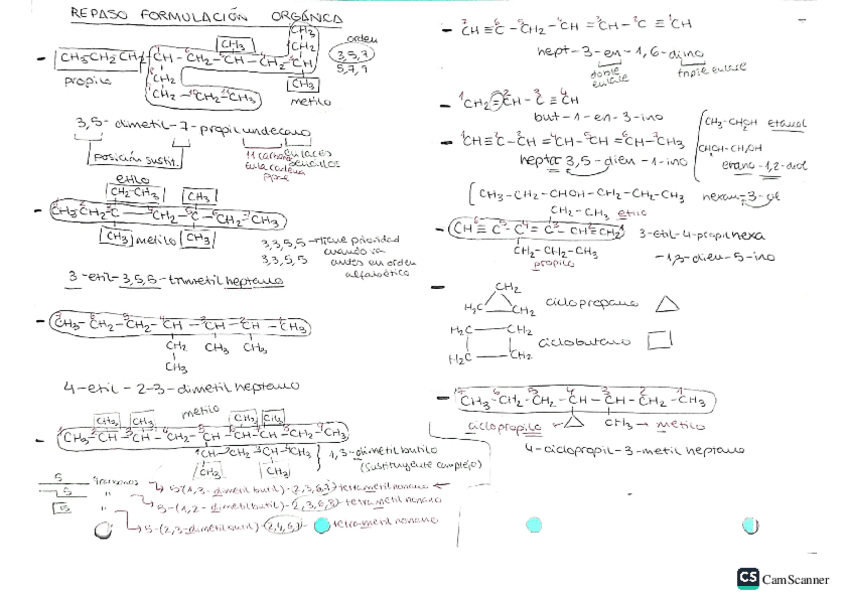 REPASO FORMULACIÓN ORGÁNICA
CH3
CH2
orden
3,5,7
5,7,9
- CH3CH2CH2-CH-CH2-CH-CH2-CH
CH3
propilo
CH2
CH2-CH2-CH3
CH3
metilo
3,5-dimetil-7-propilundecano
posición sustit.
11 carbonos en la cadena ppal
enlaces sencillos
etilo
CH2-CH3
CH3
- CH3CH2C-CH2-C-CH2-CH3
CH3 metilo CH3
3,3,5,5 → tiene prioridad
3,3,5,5 cuando va
antes en orden
alfabético
3-etil-3,5,5-trimetilheptano
- CH3-CH2-CH2-CH-CH-CH-CH3
CH2 CH3 CH3
CH3
4-etil-2-3-dimetilheptano
metilo
CH3 CH3 CH3 CH3
- CH3-CH-CH-CH2-CH-CH-CH-CH2-CH3
CH-CH2-CH-CH3
CH3 CH3
1,3-dimetilbutilo
(sustituyente complejo)
5-(1,3-dimetilbutil)-2,3,6,7 tetrametilnonano
5-(1,2-dimetilbutil)-2,3,6,8-tetrametilnonano
5-(2,3-dimetilbutil) tetrametilnonano
- CH≡C-CH2-CH=CH-C≡CH
hept-3-en-1,6-diino
doble enlace
triple enlace
- CH2=CH-C≡CH
but-1-en-3-ino
- CH≡C-CH=CH-CH=CH-CH3
hepta-3,5-dien-1-ino
CH3-CH2OH etanol
CH2OH-CH2OH
etano-1,2-diol
CH3-CH2-CHOH-CH2-CH2-CH3 hexan-3-ol
CH2-CH3 etilo
- CH≡C-C=C-CH=CH2
CH2-CH2-CH3
propilo
3-etil-4-propilhexa
-1,3-dien-5-ino
-
CH2
H2C CH2 ciclopropano
H2C CH2
H2C CH2 ciclobutano
- CH3-CH2-CH2-CH-CH-CH2-CH3
ciclopropilo
CH3 → metilo
4-ciclopropil-3-metilheptano
CS CamScanner